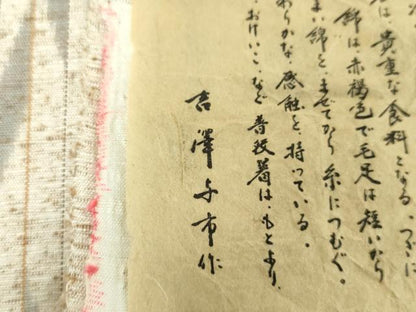 は、貴重な食料となる つさに
綿は、赤褐色で毛足は短いなり
い綿と、まぜてから糸につむぐ。
わらかな感触を持っている。
おけいこ、など 普段着は、もとより、
吉澤与市作